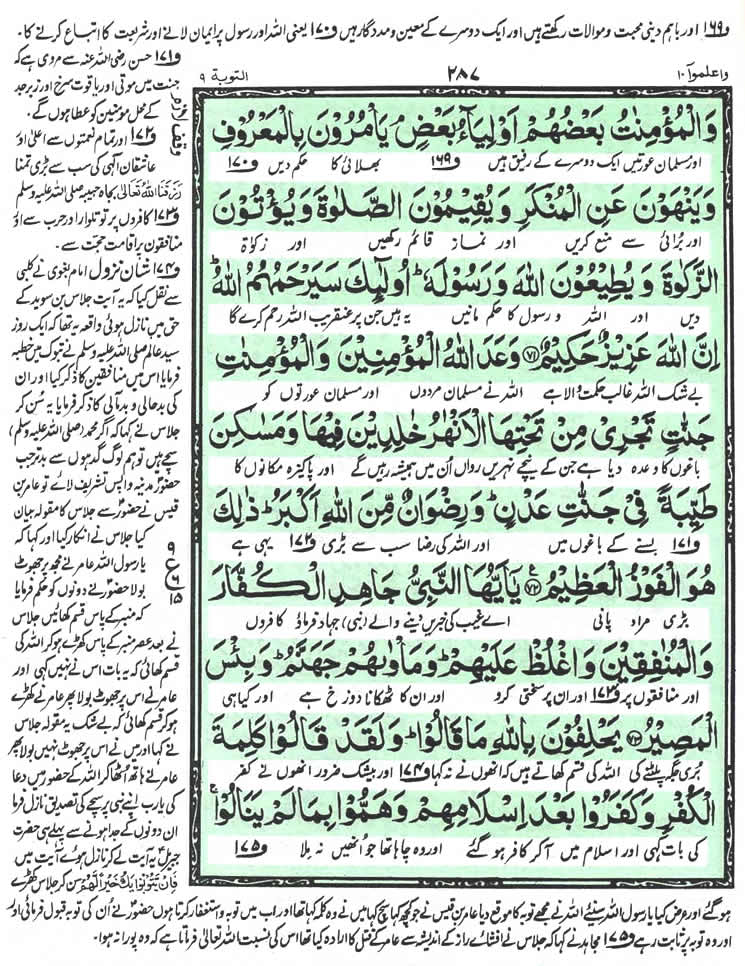 ف۱۶۹ اور باہم دینی محبت و موالات رکھتے ہیں اور ایک دوسرے کے معین و مددگار ہیں ف۱۷۰ یعنی اللہ اور رسول پر ایمان لانے اور شریعت کا اتباع کرنے کا۔
واعلموآ ۱۰
۲۸۷
التوبة ۹
وَالْمُؤْمِنٰتُ بَعْضُهُمْ اَوْلِيَآءُ بَعْضٍ ۘ يَاْمُرُوْنَ بِالْمَعْرُوْفِ
اور مسلمان عورتیں ایک دوسرے کے رفیق ہیں ف۱۶۹ بھلائی کا حکم دیں ف۱۷۰
وَيَنْهَوْنَ عَنِ الْمُنْكَرِ وَيُقِيْمُوْنَ الصَّلٰوةَ وَيُؤْتُوْنَ
اور برائی سے منع کریں اور نماز قائم رکھیں اور زکوٰۃ
الزَّكٰوةَ وَيُطِيْعُوْنَ اللهَ وَرَسُوْلَهٗ ؕ اُولٰٓئِكَ سَيَرْحَمُهُمُ اللهُ ؕ
دیں اور اللہ و رسول کا حکم مانیں یہ ہیں جن پر عنقریب اللہ رحم کرے گا
اِنَّ اللهَ عَزِيْزٌ حَكِيْمٌ ﴿۷۱﴾ وَعَدَ اللهُ الْمُؤْمِنِيْنَ وَالْمُؤْمِنٰتِ
بے شک اللہ غالب حکمت والا ہے اللہ نے مسلمان مردوں اور مسلمان عورتوں کو
جَنّٰتٍ تَجْرِيْ مِنْ تَحْتِهَا الْاَنْهٰرُ خٰلِدِيْنَ فِيْهَا وَمَسٰكِنَ
باغوں کا وعدہ دیا ہے جن کے نیچے نہریں رواں اُن میں ہمیشہ رہیں گے اور پاکیزہ مکانوں کا
طَيِّبَةً فِيْ جَنّٰتِ عَدْنٍ ؕ وَرِضْوَانٌ مِّنَ اللهِ اَكْبَرُ ؕ ذٰلِكَ
ف۱۷۱ بسنے کے باغوں میں اور اللہ کی رضا سب سے بڑی ف۱۷۲ یہی ہے
هُوَ الْفَوْزُ الْعَظِيْمُ ﴿۷۲﴾ يٰٓاَيُّهَا النَّبِيُّ جَاهِدِ الْكُفَّارَ
بڑی مراد پانی اے غیب کی خبریں دینے والے (نبی) جہاد فرماؤ کافروں
وَالْمُنٰفِقِيْنَ وَاغْلُظْ عَلَيْهِمْ ؕ وَمَاْوٰىهُمْ جَهَنَّمُ ؕ وَبِئْسَ
اور منافقوں پر ف۱۷۳ اور ان پر سختی کرو اور ان کا ٹھکانا دوزخ ہے اور کیا ہی
الْمَصِيْرُ ﴿۷۳﴾ يَحْلِفُوْنَ بِاللهِ مَا قَالُوْا ؕ وَلَقَدْ قَالُوْا كَلِمَةَ
بُری جگہ پلٹنے کی اللہ کی قسم کھاتے ہیں کہ انھوں نے نہ کہا ف۱۷۴ اور بیشک ضرور انھوں نے کفر
الْكُفْرِ وَكَفَرُوْا بَعْدَ اِسْلَامِهِمْ وَهَمُّوْا بِمَا لَمْ يَنَالُوْا ۚ
کی بات کہی اور اسلام میں آکر کافر ہوگئے اور وہ چاہا تھا جو اُنھیں نہ ملا ف۱۷۵
ف۱۷۱ حسن رضی اللہ عنہ سے مروی ہے کہ
جنت میں موتی اور یاقوت سرخ اور زبرجد
کے محل مومنین کو عطا ہوں گے۔
ف۱۷۲ اور تمام نعمتوں سے اعلیٰ اور
عاشقان الٰہی کی سب سے بڑی تمنا
رَزَقَنَا اللهُ تَعَالٰی بجاہ حبیبہ صلی اللہ علیہ وسلم
ف۱۷۳ کافروں پر تو تلوار اور حرب سے اور
منافقوں پر اقامت حجت سے۔
ف۱۷۴ شان نزول امام بغوی نے کلبی
سے نقل کیا کہ یہ آیت جلاس بن سوید کے
حق میں نازل ہوئی واقعہ یہ تھا کہ ایک روز
سید عالم صلی اللہ علیہ وسلم نے تبوک میں خطبہ
فرمایا اس میں منافقین کا ذکر کیا اور ان
کی بدحالی و بدمآلی کا ذکر فرمایا یہ سُن کر
جلاس نے کہا کہ اگر محمد (صلی اللہ علیہ وسلم)
سچے ہیں تو ہم لوگ گدھوں سے بدتر جب
حضور مدینہ واپس تشریف لائے تو عامر بن
قیس نے حضور سے جلاس کا مقولہ بیان
کیا جلاس نے انکار کیا اور کہا کہ
یا رسول اللہ عامر نے مجھ پر جھوٹ
بولا حضور نے دونوں کو حکم فرمایا
کہ منبر کے پاس قسم کھائیں جلاس
نے بعد عصر منبر کے پاس کھڑے ہو کر اللہ کی
قسم کھائی کہ یہ بات اس نے نہیں کہی اور
عامر نے اس پر جھوٹ بولا پھر عامر نے کھڑے
ہو کر قسم کھائی کہ بے شک یہ مقولہ جلاس
نے کہا اور میں نے اس پر جھوٹ نہیں بولا پھر
عامر نے ہاتھ اُٹھا کر اللہ کے حضور میں دعا
کی یارب اپنے نبی پر سچے کی تصدیق نازل فرما
ان دونوں کے جدا ہونے سے پہلے ہی حضرت
جبریل یہ آیت لے کر نازل ہوئے آیت میں
فَاِنْ يَّتُوْبُوْا يَكُ خَيْرًا لَّهُمْ سن کر جلاس کھڑے
ہوگئے اور عرض کیا یا رسول اللہ سنیئے اللہ نے مجھے توبہ کا موقع دیا عامر بن قیس نے جو کچھ کہا سچ کہا میں نے وہ کلمہ کہا تھا اور اب میں توبہ و استغفار کرتا ہوں حضور نے اُن کی توبہ قبول فرمائی اور
اور وہ توبہ پر ثابت رہے ف۱۷۵ مجاہد نے کہا کہ جلاس نے افشائے راز کے اندیشہ سے عامر کے قتل کا ارادہ کیا تھا اس کی نسبت اللہ تعالیٰ فرماتا ہے کہ وہ پورا نہ ہوا۔
وقف لازم
۹
ع
۶
۱۵